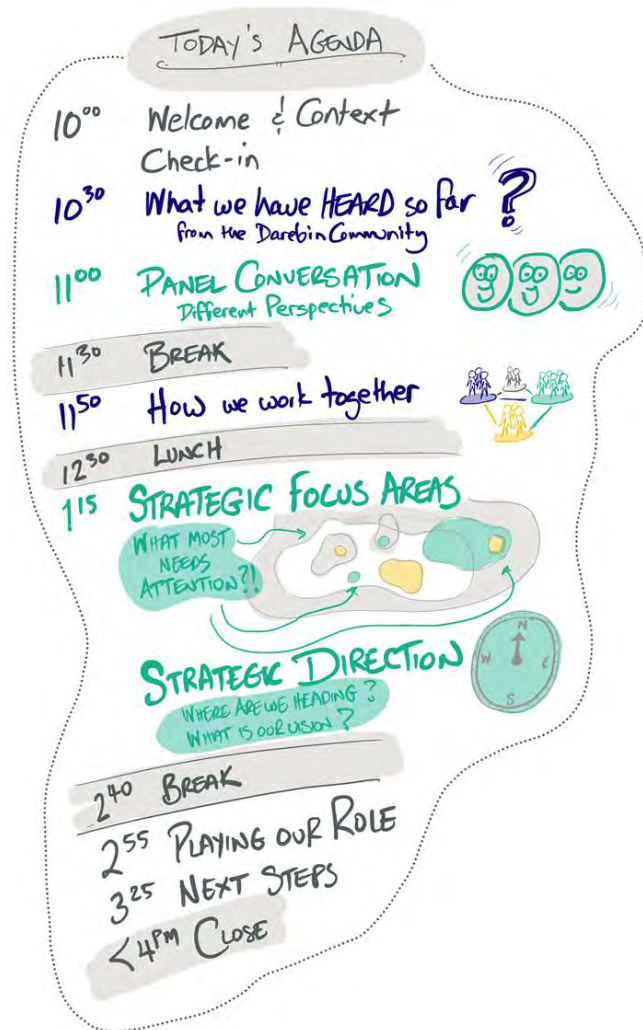 TODAY'S AGENDA
10⁰⁰ Welcome & Context
Check-in
10³⁰ What we have HEARD so far ?
from the Darebin Community
11⁰⁰ PANEL CONVERSATION
Different Perspectives
11³⁰ BREAK
11⁵⁰ How we work together
12³⁰ LUNCH
1¹⁵ STRATEGIC FOCUS AREAS
WHAT MOST
NEEDS
ATTENTION?!
STRATEGIC DIRECTION
N
W E
S
WHERE ARE WE HEADING?
WHAT IS OUR VISION?
2⁴⁰ BREAK
2⁵⁵ PLAYING OUR ROLE
3²⁵ NEXT STEPS
<4PM CLOSE